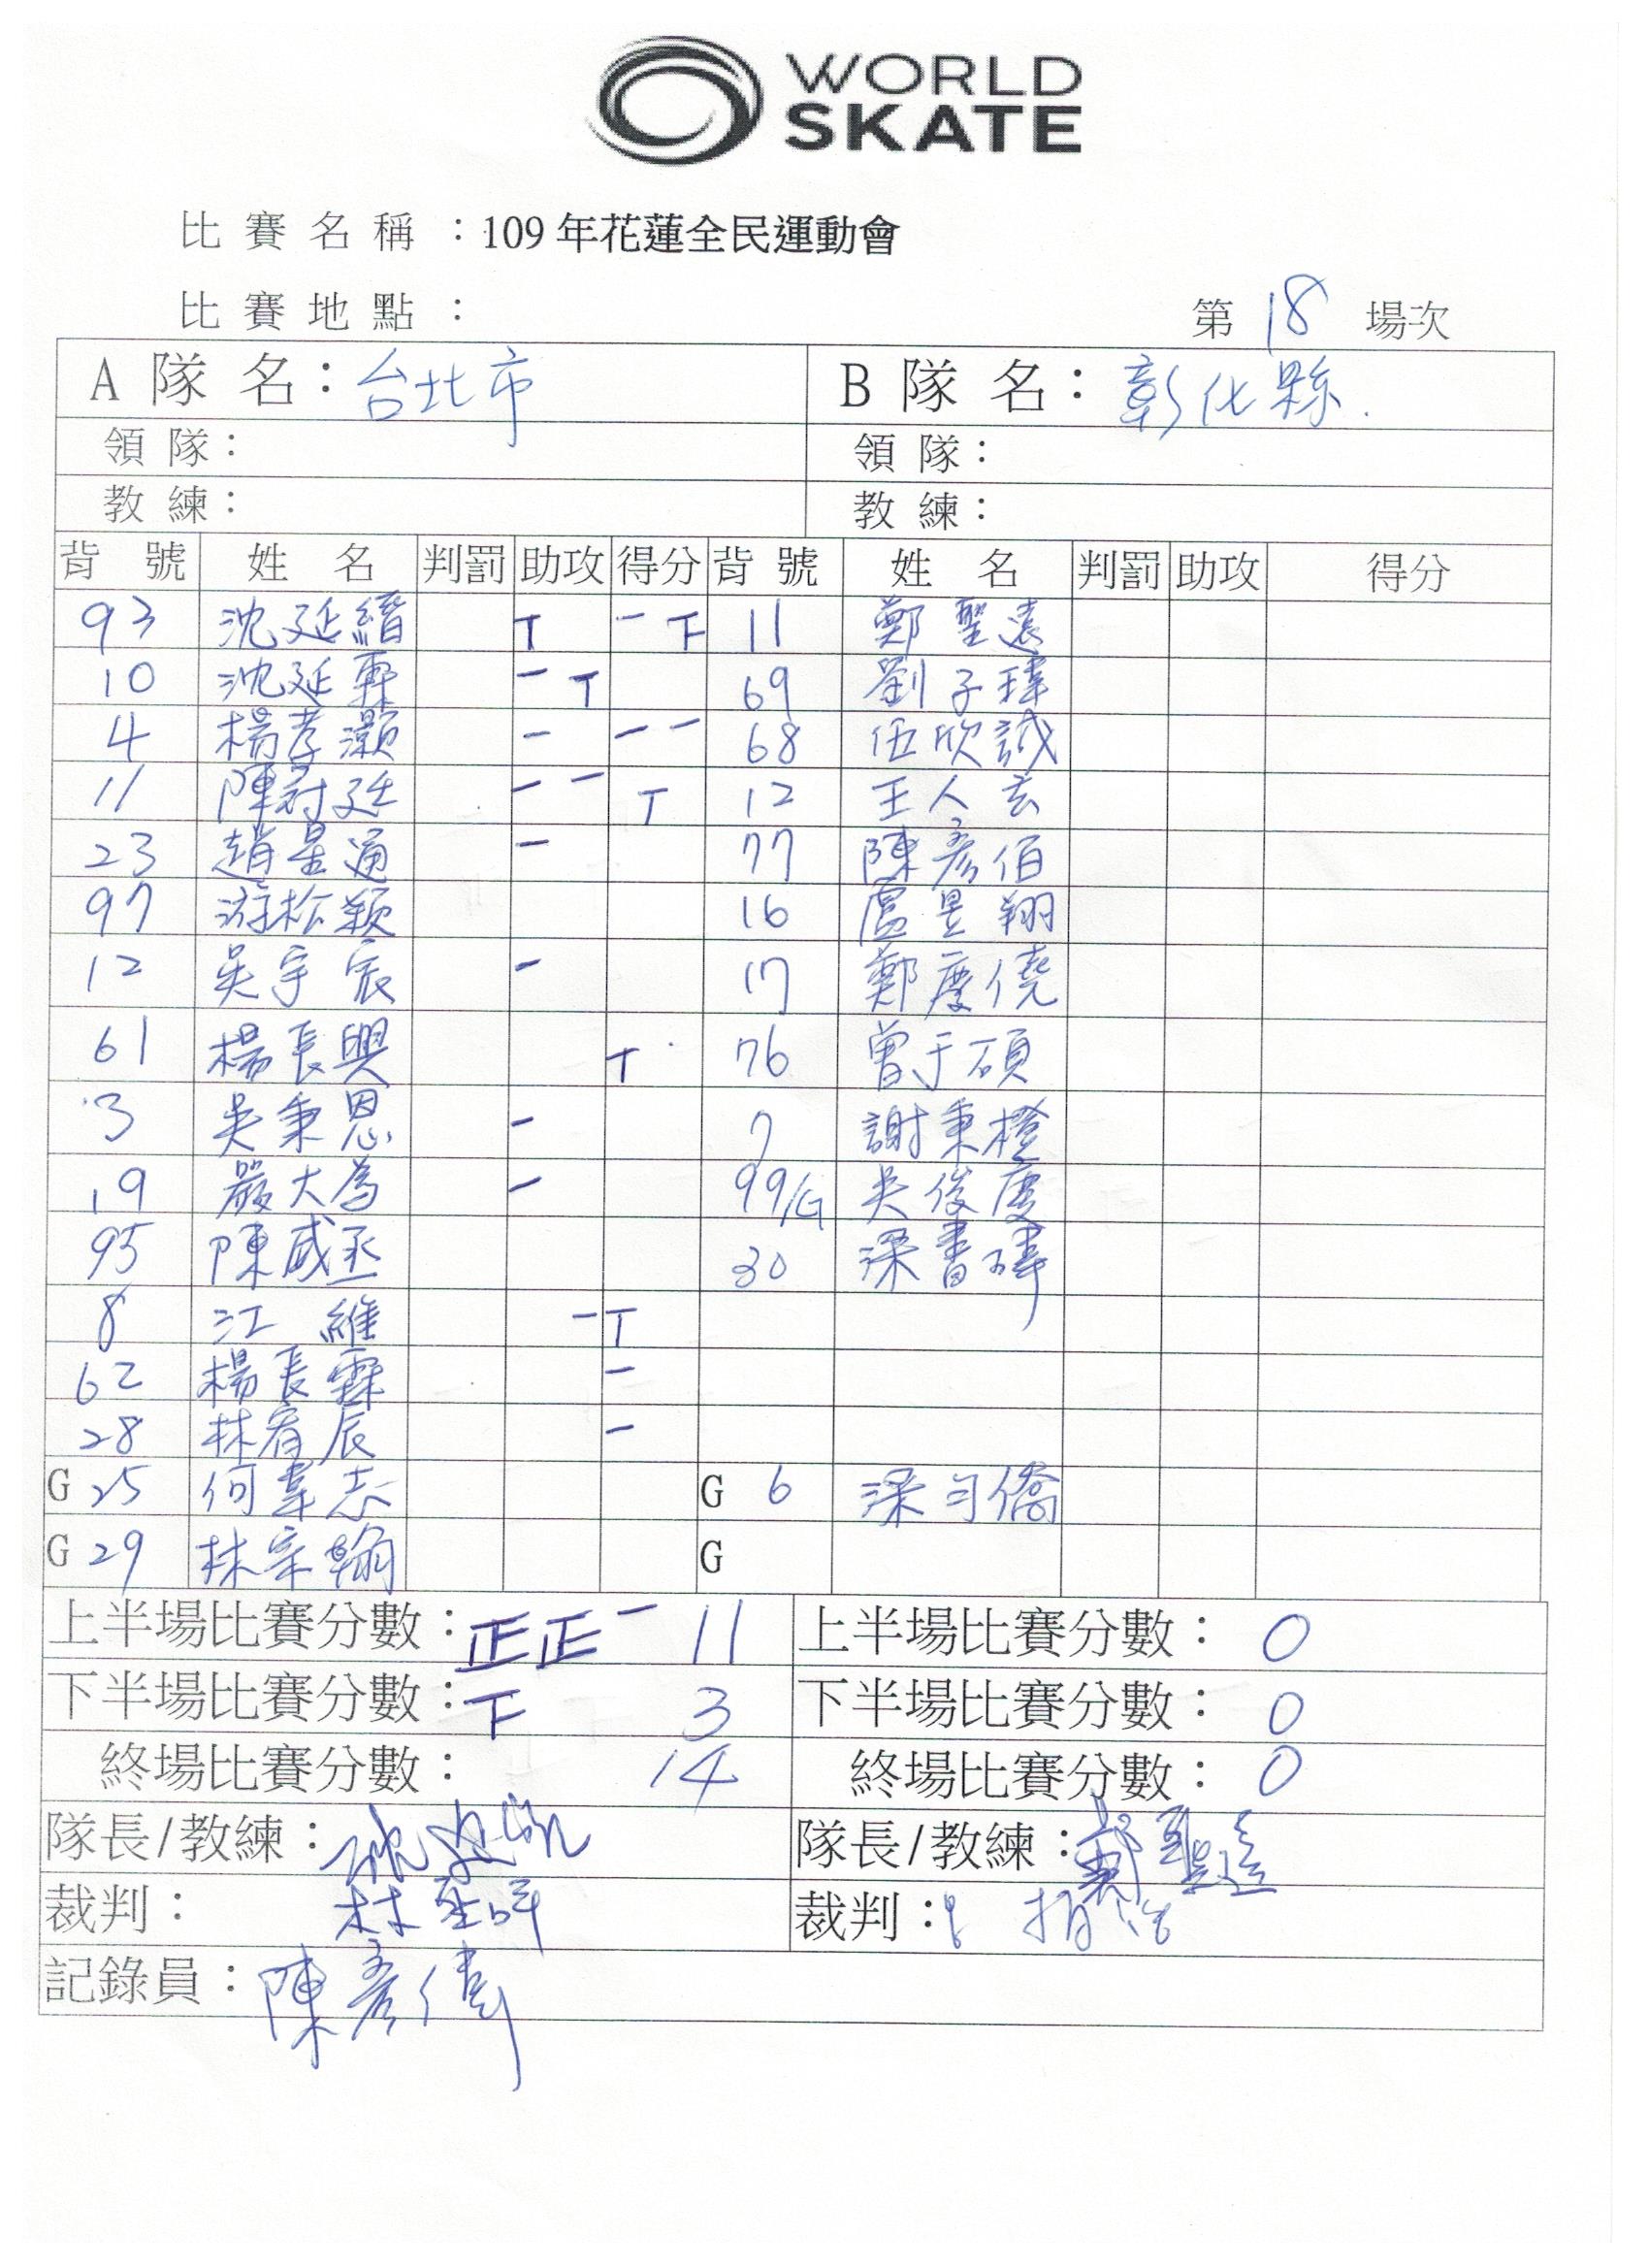 WORLD
SKATE
比賽名稱：109年花蓮全民運動會
比賽地點：
第 18 場次
A 隊名：台北市 B 隊名：彰化縣.
領隊： 領隊：
教練： 教練：
背號 姓名 判罰 助攻 得分 背號 姓名 判罰 助攻 得分
93 沈延縉 T 一 下 11 鄭聖遠
10 沈延軒 一 T 69 劉子瑋
4 楊孝灝 一 一 一 68 伍欣誠
11 陳 廷 一 一 T 12 王人玄
23 趙星通 一 77 陳彥佰
97 游松穎 16 盧昱翔
12 吳宇宸 一 17 鄭慶僥
61 楊長興 T 76 曾于碩
3 吳秉恩 一 7 謝秉橙
19 嚴大為 一 99/G 吳俊慶
95 陳威丞 30 梁書瑋
8 江維 一 T
62 楊長霖 一
28 林宥辰 一
G 25 何韋志 G 6 梁勻僑
G 29 林宗翰 G
上半場比賽分數：正正一 11 上半場比賽分數：0
下半場比賽分數：下 3 下半場比賽分數：0
終場比賽分數：14 終場比賽分數：0
隊長/教練： 隊長/教練：鄭聖遠
裁判：林 裁判：
記錄員：陳彥偉